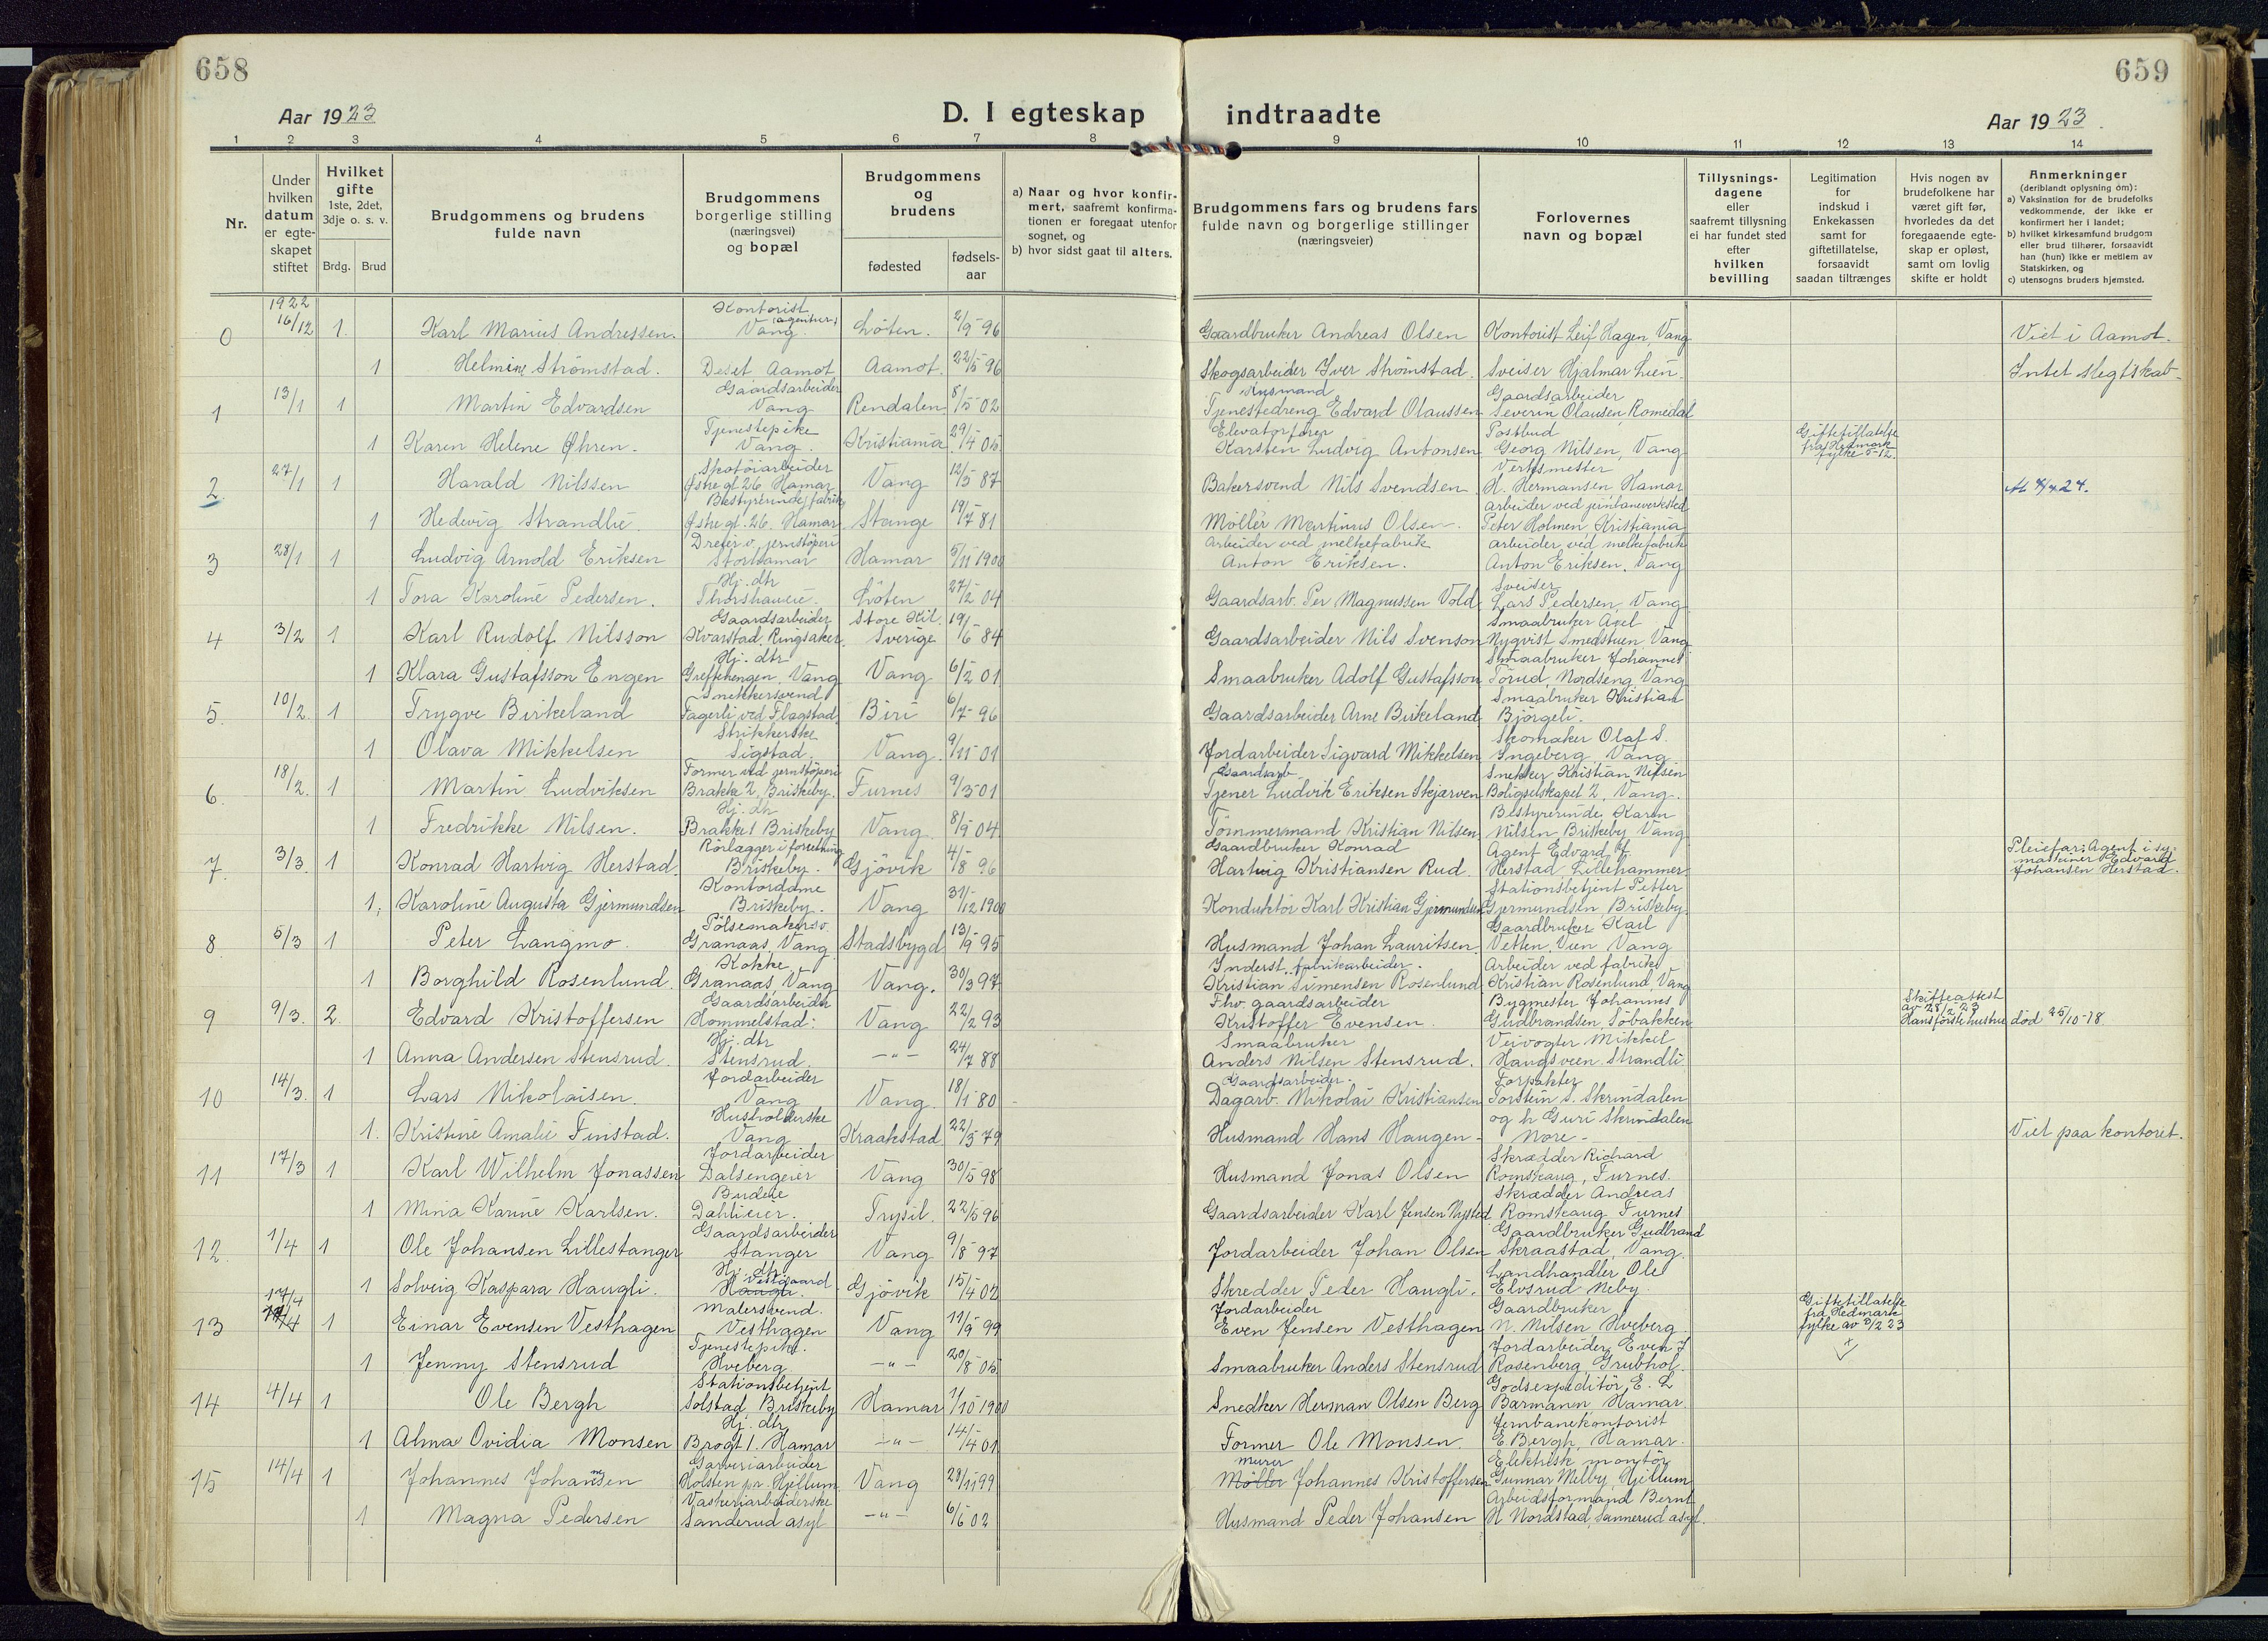 658
659
Aar 1923
D. I egteskap indtraadte
Aar 1923.
1 2 3 4 5 6 7 8 9 10 11 12 13 14
Nr.
Under hvilken datum er egteskapet stiftet
Hvilket gifte 1ste, 2det, 3dje o. s. v.
Brdg. Brud
Brudgommens og brudens fulde navn
Brudgommens borgerlige stilling (næringsvei) og bopæl
Brudgommens og brudens
fødested
fødsels-aar
a) Naar og hvor konfir-
mert, saafremt konfirma-
tionen er foregaat utenfor
sognet, og
b) hvor sidst gaat til alters.
Brudgommens fars og brudens fars
fulde navn og borgerlige stillinger
(næringsveier)
Forlovernes
navn og bopæl
Tillysnings-
dagene
eller
saafremt tillysning
ei har fundet sted
efter
hvilken
bevilling
Legitimation
for
indskud i
Enkekassen
samt for
giftetillatelse,
forsaavidt
saadan tiltrænges
Hvis nogen av
brudefolkene har
været gift før,
hvorledes da det
foregaaende egte-
skap er opløst,
samt om lovlig
skifte er holdt
Anmerkninger
(deriblandt oplysning om):
a) Vaksination for de brudefolks
vedkommende, der ikke er
konfirmert her i landet;
b) hvilket kirkesamfund brudgom
eller brud tilhører, forsaavidt
han (hun) ikke er medlem av
Statskirken, og
c) utensogns bruders hjemsted.
0 1922 16/12 1. Karl Marius Andressen. Kontorist (agentur) Vang. Löten. 2/9 96 Gaardbruker Andreas Olsen Kontorist Leif Hagen, Vang Viet i Aamot.
1 Helmine Strömstad. Deset Aamot Aamot. 22/5 96 Skogsarbeider Iver Strömstad. Sveiser Hjalmar Lien. Intet slegtskab
1 13/1 1 Martin Edvardsen Gaardsarbeider Vang Rendalen 8/5 02 Husmand Tjenestedreng Edvard Olaussen Gaardsarbeider Severin Olausen, Romedal
1 Karen Helene Øhren. Tjenestepike Vang. Kristiania 29/4 05 Elevatorfører Karsten Ludvig Antonsen Postbud Georg Nilsen, Vang Giftetillatelse fra Hedmark fylke 5-12.
2. 27/1 1 Harald Nilssen Skotöiarbeider Østre gt 26 Hamar Vang 12/5 87 Bakersvend Nils Svendsen. Verksmester H. Hermansen Hamar
1 Hedevig Strandlie Bestyrerinde, fabrik Østre gt. 26. Hamar Stange 19/7 81 Möller Martinus Olsen. Arbeider ved jernbaneverksted Peter Holmen Kristiania
3 28/1 1 Ludvig Arnold Eriksen Dreier v. jernstöperi Storhamar Hamar 5/11 1900 Arbeider ved melkefabrik Anton Eriksen. Arbeider ved melkefabrik Anton Eriksen, Vang
1 Tora Karoline Pedersen. Hj. dtr Thorshaueie. Löten 27/2 04 Gaardsarb. Per Magnussen Vold Sveiser Lars Pedersen, Vang
4 3/2 1 Karl Rudolf Nilsson Gaardsarbeider Kvarstad, Ringsaker Store Kil. Sverige 19/6 84 Gaardsarbeider Nils Svenson Smaabruker Axel Nyqvist Smedstuen, Vang
1 Klara Gustafsson Engen Hj. dtr Greftehengen, Vang Vang 6/2 01 Smaabruker Adolf Gustafsson Smaabruker Johannes Torud, Nordseng Vang
5. 10/2. 1 Trygve Birkeland Snekkersvend Fagerli ved Flagstad Biri 6/7 96 Gaardsarbeider Arne Birkeland Smaabruker Kristian Björgeli.
1 Olava Mikkelsen Strikkerske Sigstad. Vang 9/11 01 Jordarbeider Sigvard Mikkelsen Skomaker Olaf S. Ingeberg Vang
6. 18/2. 1 Martin Ludviksen Former ved jernstöperi Brakke 2, Briskeby. Furnes 9/3 01 Gaardsarb Tjener Ludvik Eriksen Skjærven Snekker Kristian Nilsen Boligselskapet 2, Vang.
1 Fredrikke Nilsen. Hj. dtr Brakke 1 Briskeby Vang 8/9 04 Tömmermand Kristian Nilsen Bestyrerinde Karen Nilsen Briskeby Vang
7. 3/3. 1 Konrad Hartvig Herstad. Rörlægger i forretning Briskeby. Gjövik 4/8 96 Gaardbruker Konrad Hartvig Kristiansen Rud. Agent Edvard J. Herstad Lillehammer Pleiefar: Agent i sy- maskiner Edvard Johansen Herstad.
1, Karoline Augusta Gjermundsen Kontordame Briskeby. Vang 31/12 1900 Konduktör Karl Kristian Gjermundsen Stationsbetjent Petter Gjermundsen, Briskeby
8. 5/3 1 Peter Langmo. Pölsemakersv. Granaas, Vang Stadsbygd 13/9 95 Husmand Johan Lauritsen Gaardbruker Karl Vetten, Vien Vang
1 Borghild Rosenlund. Kokke Granaas, Vang Vang. 30/3 97 Inderst, fabrikarbeider. Kristian Simensen Rosenlund Arbeider ved fabrik Kristian Rosenlund, Vang
9 9/3. 2. Edvard Kristoffersen Gaardsarbeider Hommelstad: Vang 22/2 93 Fhv. gaardsarbeider Kristoffer Evensen. Bygmester Johannes Gudbrandsen Söbakken Skifteattest av 28/2 23 Hans förste hustru död 25/10-18.
1 Anna Andersen Stensrud. Hj. dtr Stensrud. -"- 24/7 88 Smaabruker Anders Nilsen Stensrud. Veivogter Mikkel Haugsveen Strandli.
10 14/3. 1 Lars Nikolaisen. Jordarbeider Vang Vang. 18/1 80 Gaardsarbeider. Dagarb. Nikolai Kristiansen Forpakter Torstein S. Skrindalen
1. Kristine Amalie Finstad. Husholderske Vang Kraakstad 22/3 79 Husmand Hans Haugen. og h Guri Skrindalen Nore. Viet paa kontoret.
11 17/3 1 Karl Wilhelm Jonassen Jordarbeider Dalsengeier Vang 30/5 98 Husmand Jonas Olsen Skrædder Richard Romskaug, Furnes.
1 Mina Karine Karlsen. Budeie Dahlieier. Trysil. 22/5 96 Gaardsarbeider Karl Jensen Nysted Skrædder Andreas Romskaug Furnes
12. 1/4 1 Ole Johansen Lillestanger Gaardsarbeider Stanger Vang 9/8 97 Jordarbeider Johan Olsen Gaardbruker Gudbrand Skraastad, Vang.
1 Solveig Kaspara Haugli. Hj. dtr. Vestgaard Haugli. Gjövik 15/4 02 Skredder Peder Haugli. Landhandler Ole Elvsrud Neby
13 17/4 1 Einar Evensen Vesthagen Malersvend. Vesthagen Vang 11/9 99 Jordarbeider Even Jensen Vesthagen Gaardbruker N. Nilsen Hveberg Giftetillatelse fra Hedmark fylke av 3/2 23
1 Jenny Stensrud Tjenestepike. Hveberg. -"- 20/8 05 Smaabruker Anders Stensrud Jordarbeider Even J Rosenberg Grubhol.
14 4/4 1 Ole Bergh Stationsbetjent Solstad, Briskeby Hamar 1/10 1900 Snedker Herman Olsen Berg Godsexpeditör E. L Barmann, Hamar.
1 Alma Ovidia Monsen Hj. dtr Brogt 1. Hamar -"- 14/4 01 Former Ole Monsen. Jernbanekontorist E. Bergh, Hamar.
15 14/4 1 Johannes Johannsen Garveriarbeider Holsten pr. Hjellum. Vang 28/11 99 Murer Möller Johannes Kristoffersen Elektrisk montör Gunnar Melby, Hjellum
1 Magna Pedersen Vaskeriarbeiderske Sanderud asyl -"- 6/6 02 Husmand Peder Johansen Arbeidsformand Bernt H Nordstad, Sannerud asyl.